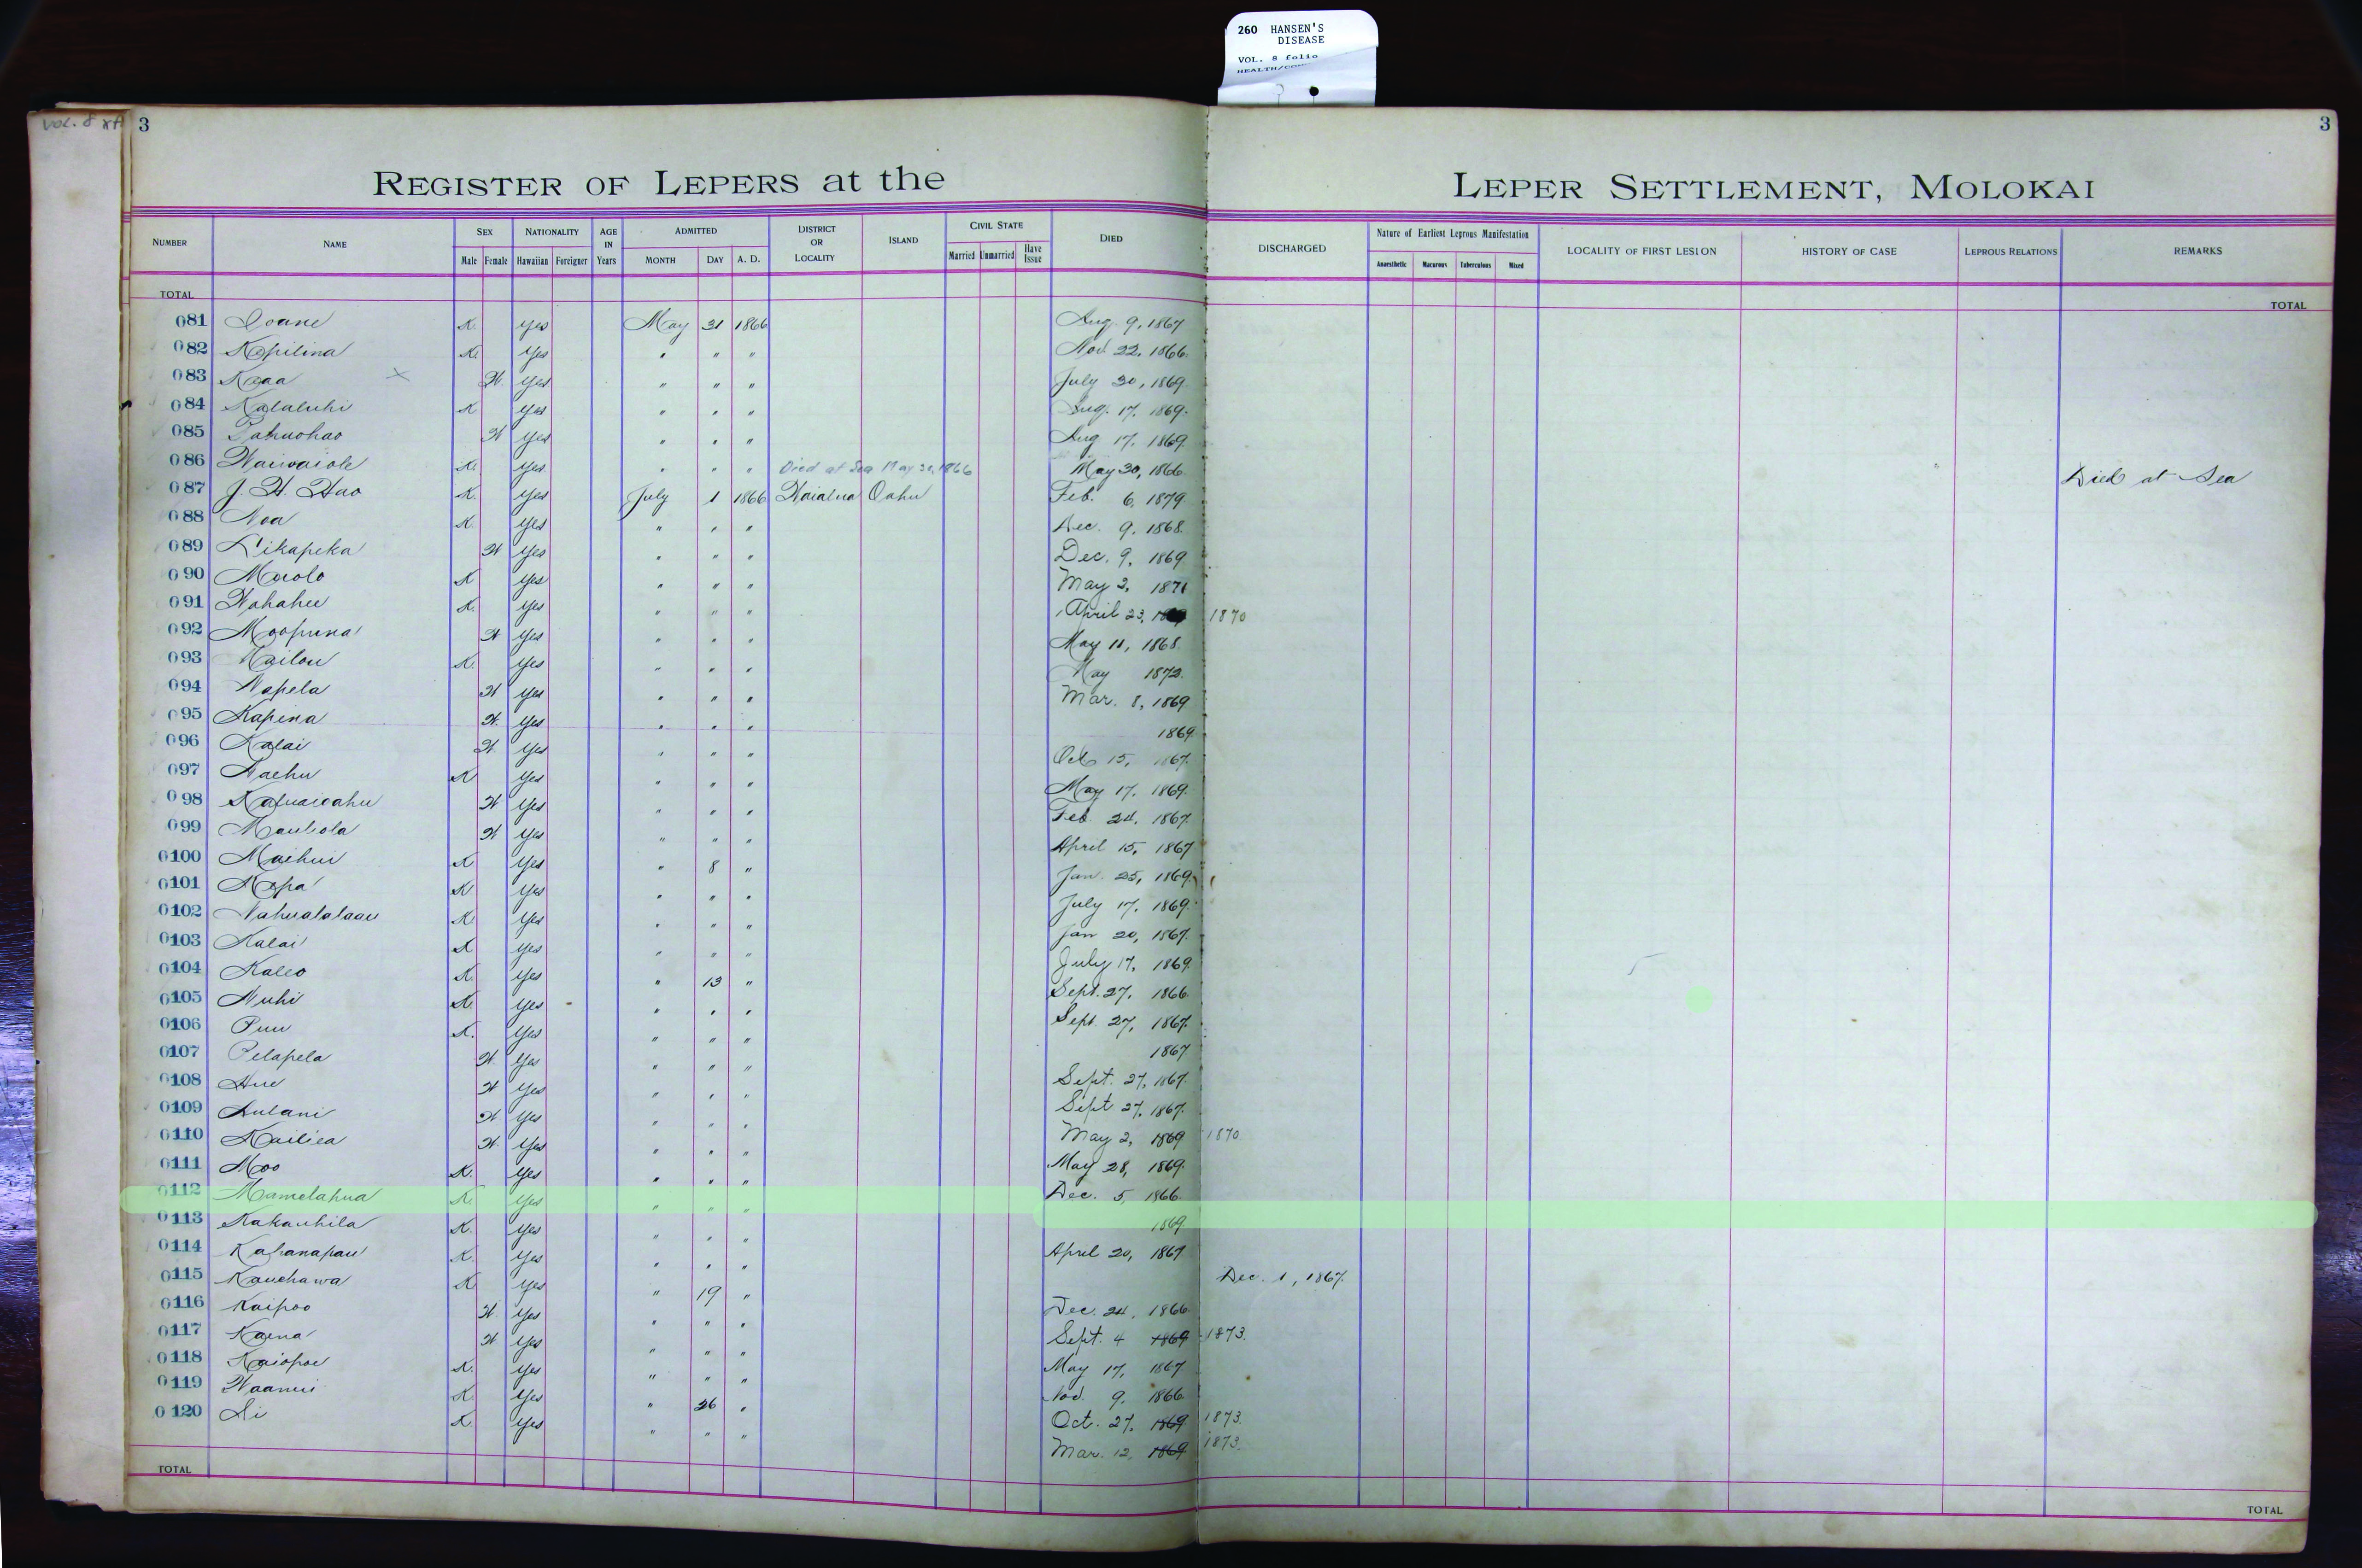 260 HANSEN'S
DISEASE
VOL. 8 folio
VOL. 8
3
3
REGISTER OF LEPERS at the LEPER SETTLEMENT, MOLOKAI
NUMBER NAME SEX Male Female NATIONALITY Hawaiian Foreigner AGE IN Years ADMITTED MONTH DAY A. D. DISTRICT OR LOCALITY ISLAND CIVIL STATE Married Unmarried Have Issue DIED DISCHARGED Nature of Earliest Leprous Manifestation Anaesthetic Macurous Tuberculous Mixed LOCALITY OF FIRST LESION HISTORY OF CASE LEPROUS RELATIONS REMARKS
TOTAL TOTAL
081 Ioane K. Yes May 31 1866 Aug. 9, 1867
082 Kapilina K. Yes " " " Nov. 22, 1866.
083 Kaaa X W. Yes " " " July 30, 1869.
084 Kalaluhi K Yes " " " Aug. 17, 1869.
085 Pahuohao W Yes " " " Aug 17, 1869.
086 Waiwaiole K. Yes " " " Died at Sea May 30, 1866 May 30, 1866. Died at Sea
087 J. H. Hao K. Yes July 1 1866 Waialua Oahu Feb. 6, 1879
088 Noa K. Yes " " " Dec. 9, 1868.
089 Likapeka W Yes " " " Dec. 9, 1869
090 Maolo K Yes " " " May 2, 1871
091 Wahahee K. Yes " " " April 23, 1870
092 Moopuna W Yes " " " May 11, 1868.
093 Kailou K. Yes " " " May 1872.
094 Napela W Yes " " " Mar. 8, 1869
095 Kapina W. Yes " " " 1869.
096 Kalai W. Yes " " " Oct 15, 1867.
097 Naehu K Yes " " " May 17, 1869.
098 Kauaioahu W Yes " " " Feb. 24, 1867.
099 Mauliola W Yes " " " April 15, 1867
0100 Maihui K Yes " 8 " Jan. 25, 1869.
0101 Napa K Yes " " " July 17, 1869.
0102 Nahualalaau K. Yes " " " Jan 20, 1867.
0103 Kalai K Yes " " " July 17, 1869.
0104 Kaleo K. Yes " 13 " Sept. 27, 1866.
0105 Nuhi K. Yes " " " Sept. 27, 1867.
0106 Puu K. Yes " " " 1867
0107 Pelapela W Yes " " " Sept. 27, 1867.
0108 Hue W Yes " " " Sept 27, 1867.
0109 Aulani W. Yes " " " May 2, 1869 1870.
0110 Kailiea W. Yes " " " May 28, 1869.
0111 Moo K. Yes " " " Dec. 5, 1866.
0112 Mamelahua K. Yes " " " 1869
0113 Kakauhila K. Yes " " " April 20, 1867
0114 Kahanapau K. Yes " " " Dec. 1, 1867.
0115 Kauehawa K. Yes " 19 " Dec. 24, 1866.
0116 Kaipoo W. Yes " " " Sept. 4 1869 1873.
0117 Kaena W Yes " " " May 17, 1867
0118 Kaiopoe K. Yes " " " Nov. 9, 1866.
0119 Waanui K. Yes " 26 " Oct. 27, 1869 1873.
0120 Li K. Yes " " " Mar. 12, 1869 1873.
TOTAL TOTAL